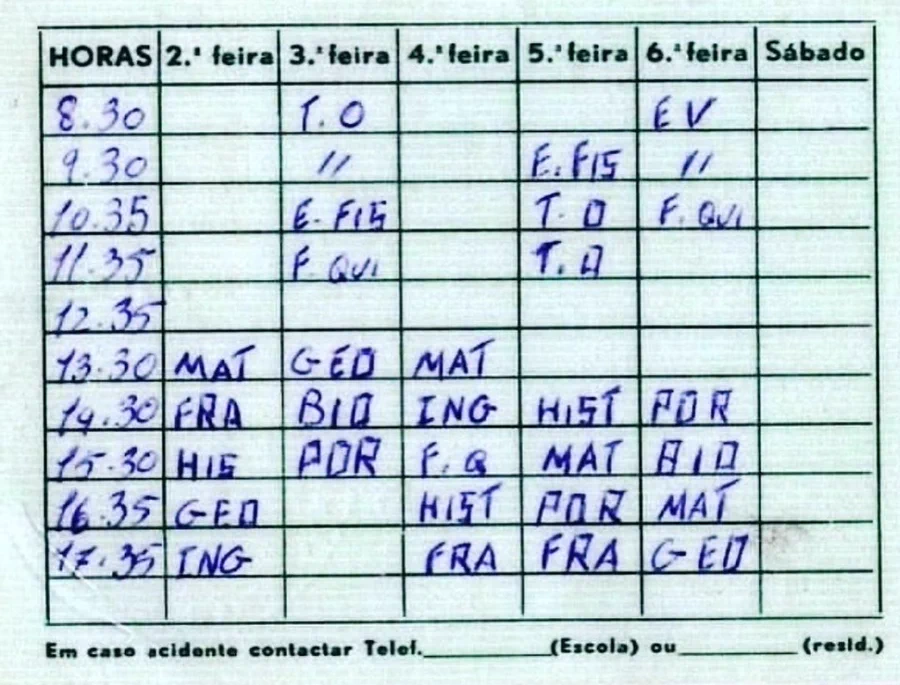 HORAS 2.ª feira 3.ª feira 4.ª feira 5.ª feira 6.ª feira Sábado
8.30 T.O EV
9.30 // E.FIS //
10.35 E.FIS T.O F.QUI
11.35 F.QUI T.O
12.35
13.30 MAT GEO MAT
14.30 FRA BIO ING HIST POR
15.30 HIS POR F.Q MAT BIO
16.35 GEO HIST POR MAT
17.35 ING FRA FRA GEO
Em caso acidente contactar Telef.__________(Escola) ou__________(resid.)